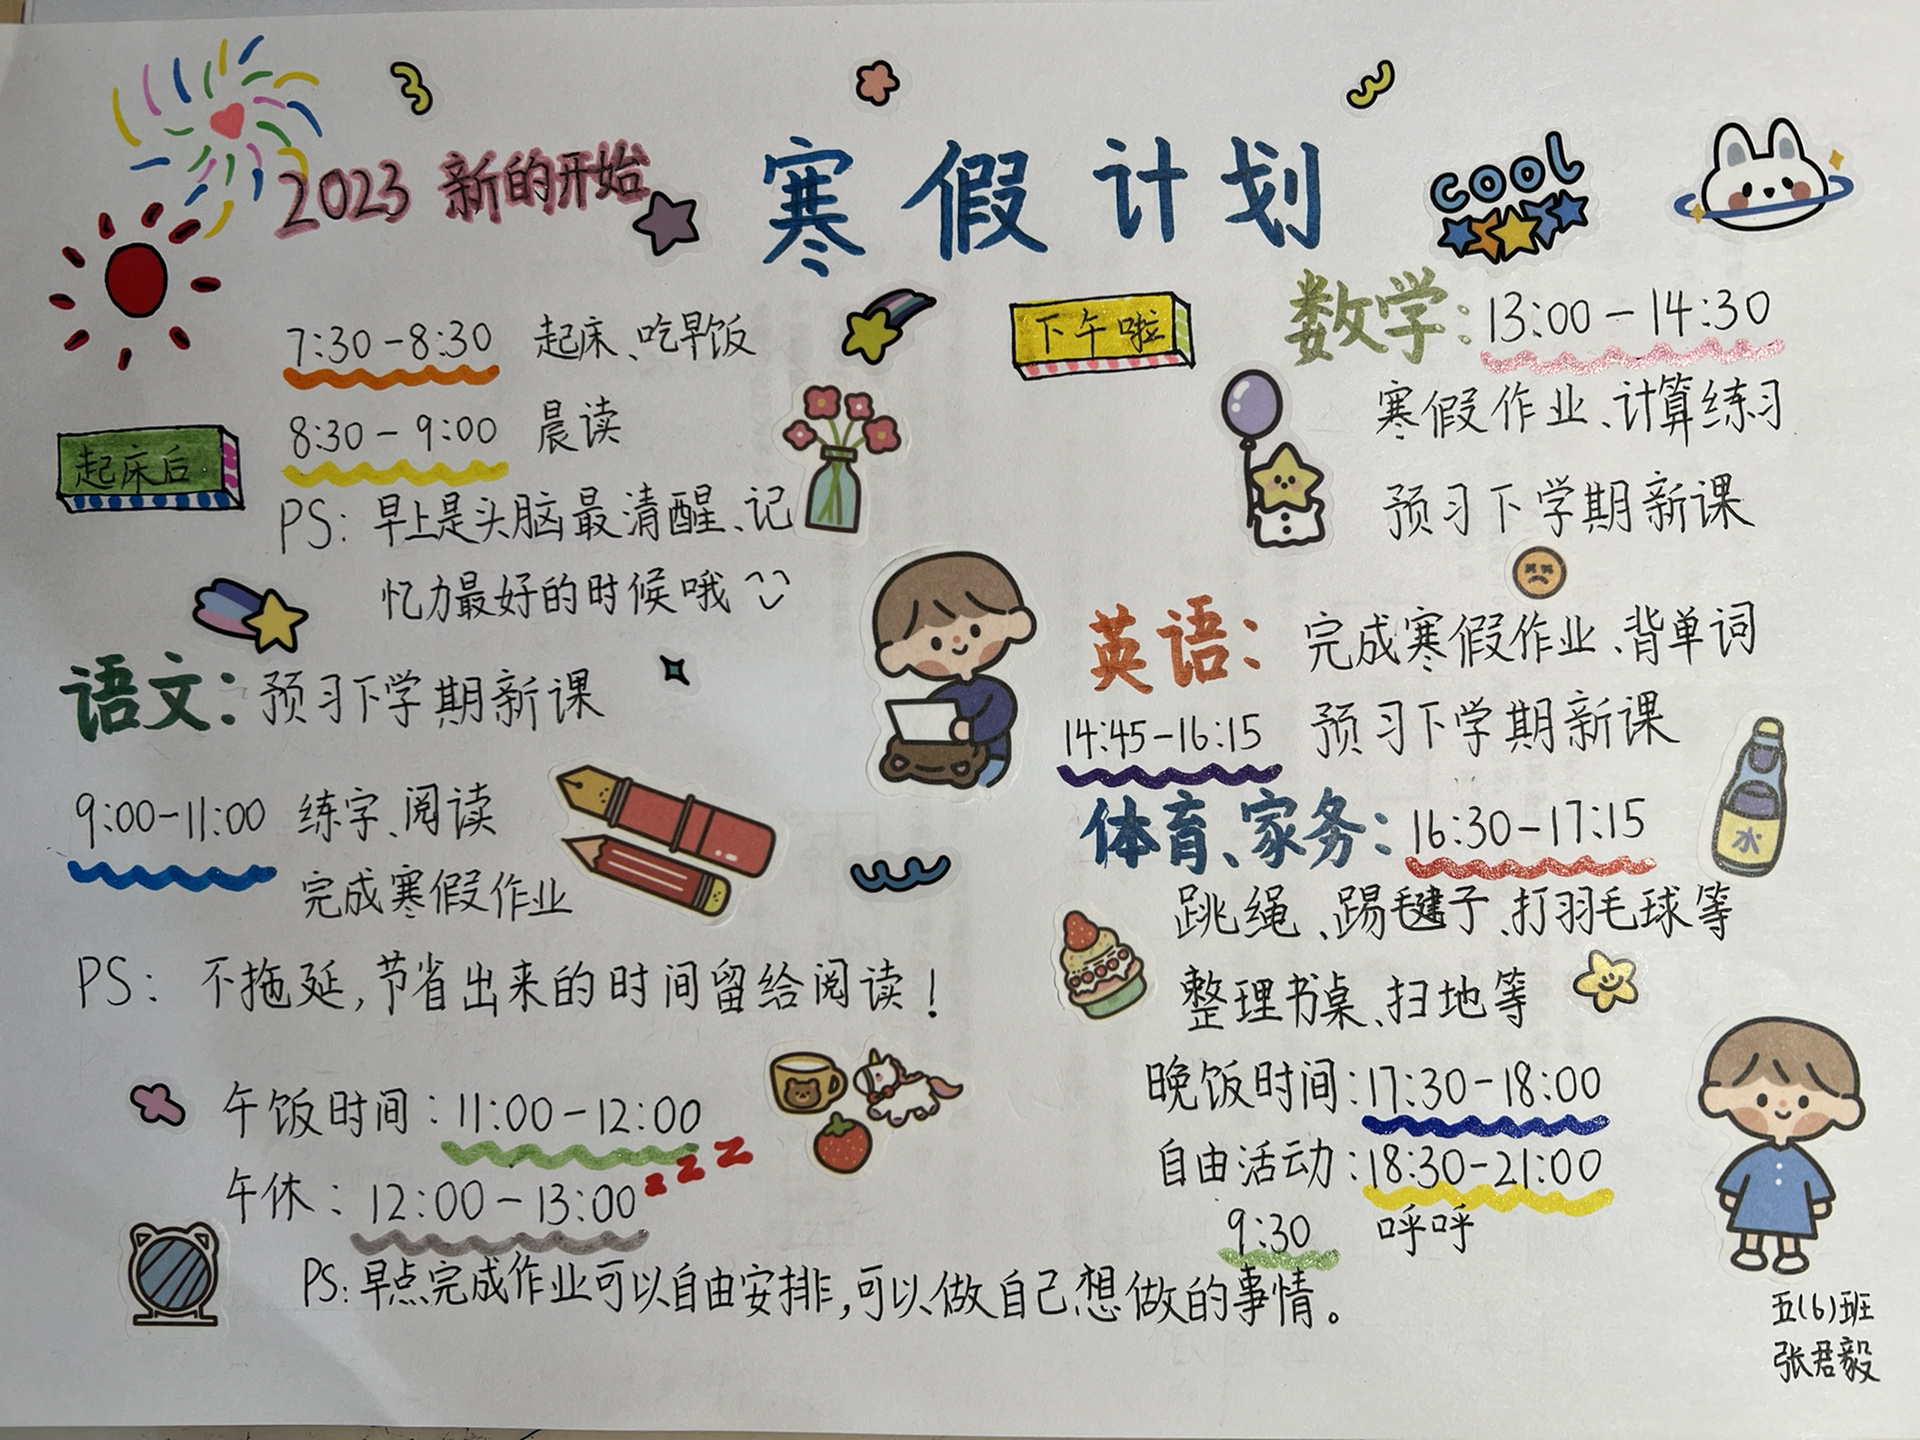 2023 新的开始
寒假计划
COOL
7:30-8:30 起床、吃早饭
起床后
8:30-9:00 晨读
PS: 早上是头脑最清醒、记
忆力最好的时候哦
语文: 预习下学期新课
9:00-11:00 练字、阅读
完成寒假作业
PS: 不拖延,节省出来的时间留给阅读!
午饭时间:11:00-12:00
zzz
午休:12:00-13:00
PS:早点完成作业可以自由安排,可以做自己想做的事情。
下午啦
数学:13:00-14:30
寒假作业、计算练习
预习下学期新课
英语: 完成寒假作业、背单词
14:45-16:15 预习下学期新课
体育、家务:16:30-17:15
水
跳绳、踢毽子、打羽毛球等
整理书桌、扫地等
晚饭时间:17:30-18:00
自由活动:18:30-21:00
9:30 呼呼
五(6)班
张君毅